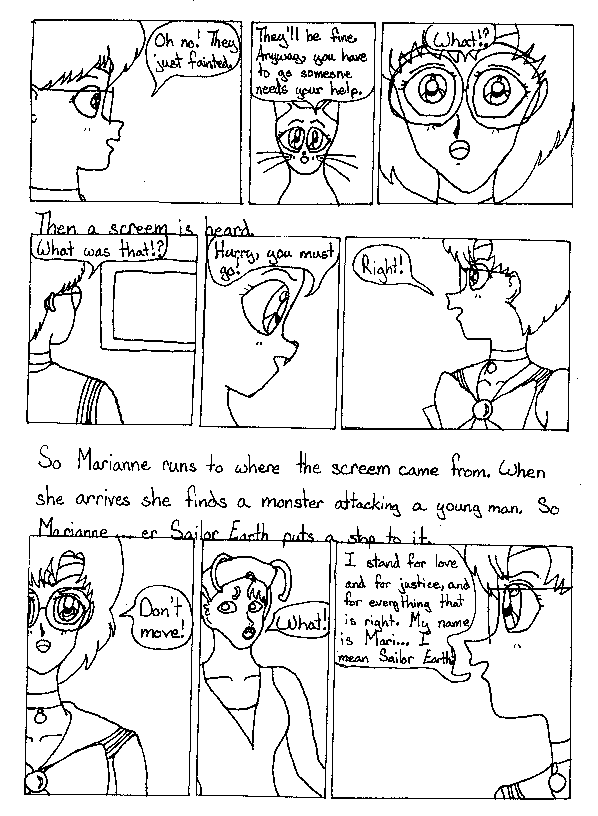 Oh no! They
just fainted.
They'll be fine.
Anyway, you have
to go someone
needs your help.
What!?
Then a screem is heard.
What was that!?
Hurry, you must
go!
Right!
So Marianne runs to where the screem came from. When
she arrives she finds a monster attacking a young man. So
Marianne... er Sailor Earth puts a stop to it.
Don't
move!
What!
I stand for love
and for justice, and
for everything that
is right. My name
is Mari... I
mean Sailor Earth